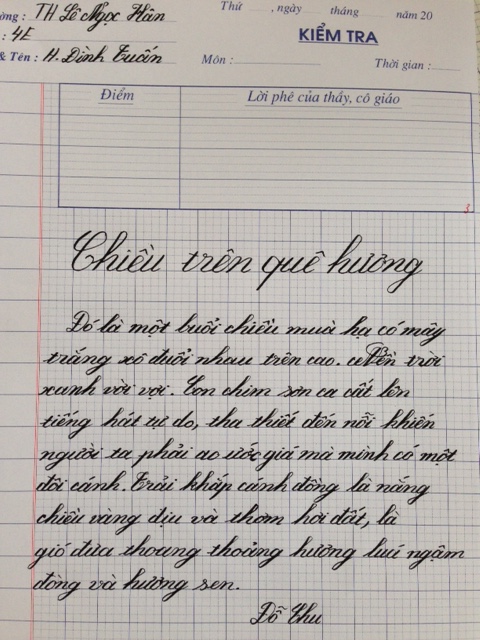 ờng: TH Lê Ngọc Hân
Thứ , ngày tháng năm 20
: 4E
KIỂM TRA
& Tên: H. Đình Tuấn
Môn: Thời gian:
Điểm Lời phê của thầy, cô giáo
Chiều trên quê hương
Đó là một buổi chiều mùa hạ có mây
trắng xô đuổi nhau trên cao. Nền trời
xanh vời vợi. Con chim sơn ca cất lên
tiếng hát tự do, tha thiết đến nỗi khiến
người ta phải ao ước giá mà mình có một
đôi cánh. Trải khắp cánh đồng là nắng
chiều vàng dịu và thơm hơi đất, là
gió đưa thoang thoảng hương lúa ngậm
đòng và hương sen.
Đỗ Chu